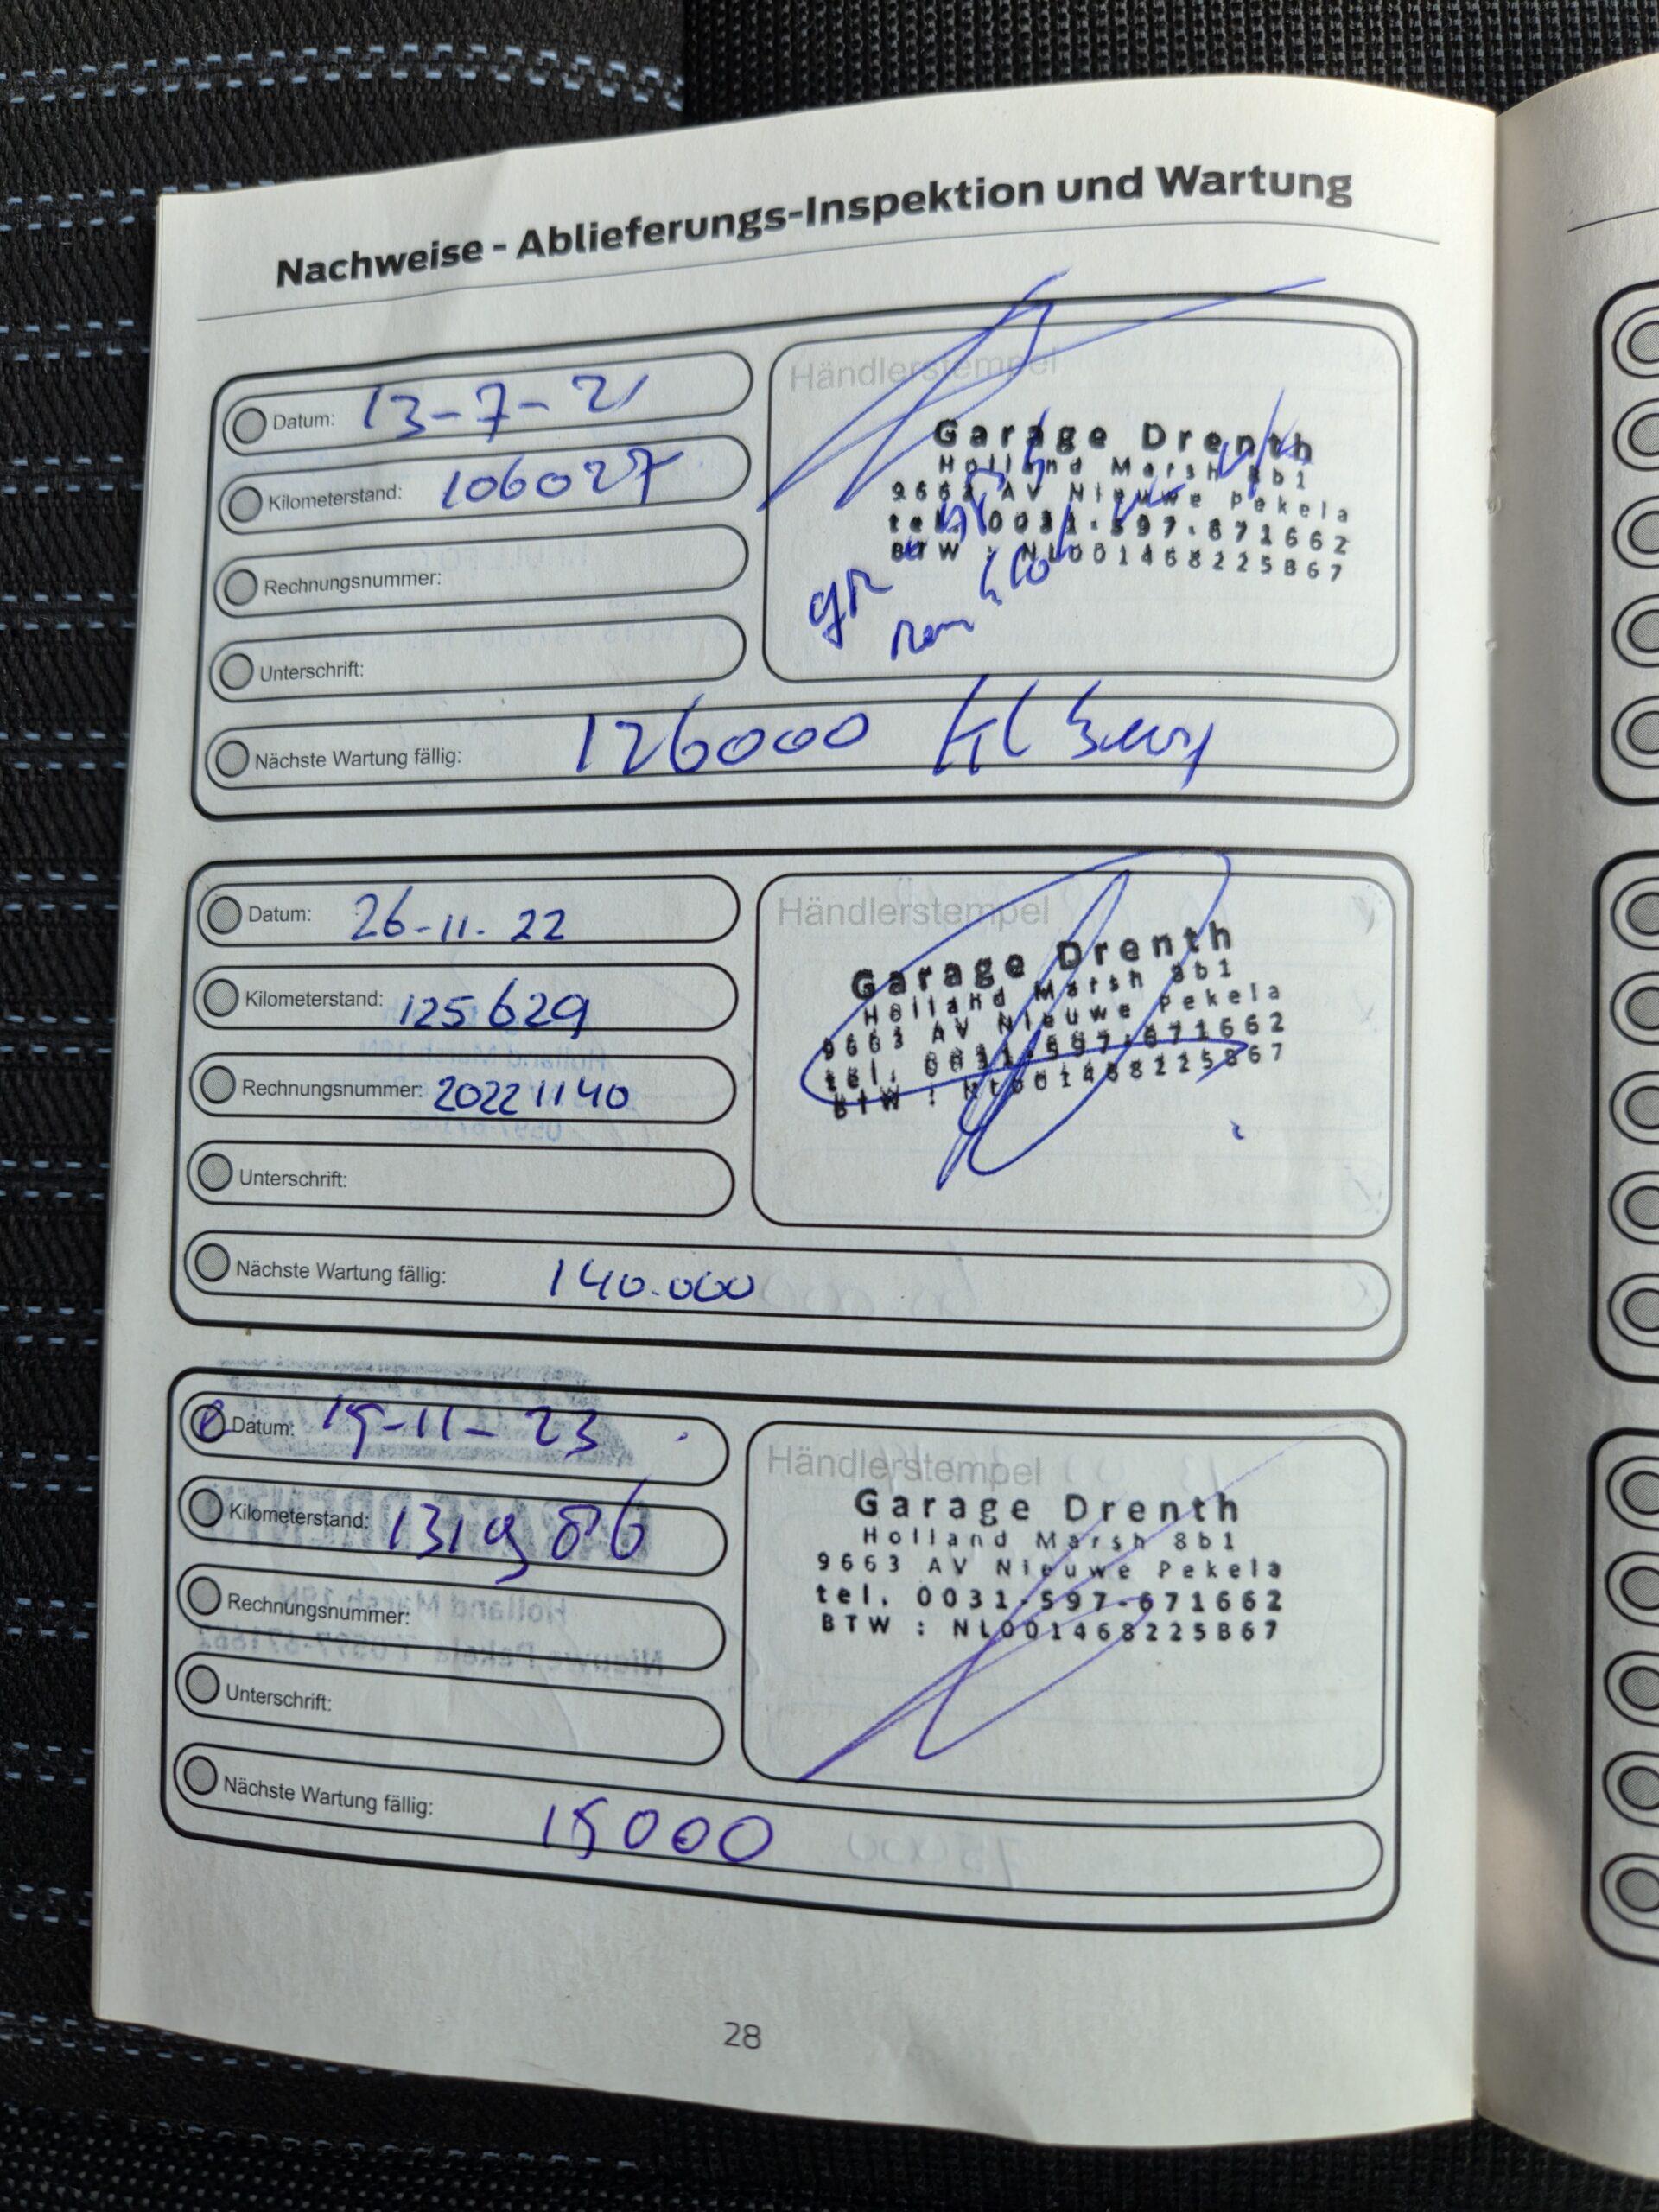 Nachweise - Ablieferungs-Inspektion und Wartung
Datum: 13-7-21
Kilometerstand: 106027
Rechnungsnummer:
Unterschrift:
Nächste Wartung fällig: 126000
Händlerstempel
Garage Drenth
Holland Marsh 8b1
9663 AV Nieuwe Pekela
tel. 0031-597-671662
BTW : NL001468225B67
Datum: 26-11-22
Kilometerstand: 125629
Rechnungsnummer: 20221140
Unterschrift:
Nächste Wartung fällig: 140.000
Händlerstempel
Garage Drenth
Holland Marsh 8b1
9663 AV Nieuwe Pekela
tel. 0031-597-671662
BTW : NL001468225B67
Datum: 15-11-23
Kilometerstand: 131986
Rechnungsnummer:
Unterschrift:
Nächste Wartung fällig: 15000
Händlerstempel
Garage Drenth
Holland Marsh 8b1
9663 AV Nieuwe Pekela
tel. 0031-597-671662
BTW : NL001468225B67
28